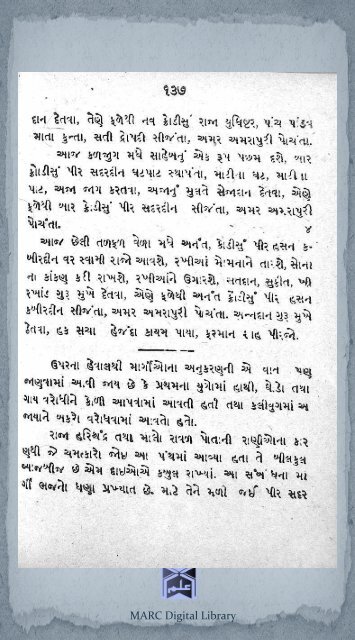 ૧૩૭
દાન દેતવા, તેણે કૂળેથી નવ ક્રોડીસું રાજા યુધિષ્ટર, પાંચ પાંડવ
માતા કુન્તા, સતી દ્રોપદી સીજંતા, અમર અમરાપુરી પોંચંતા.
આજ કળજુગ મધે સાહેબનું એક રૂપ પછમ દશે, બાર
ક્રોડીસું પિર સદરદીન ઘટપાટ સ્થાપંતા, માટીના ઘટ, માટીના
પાટ, અજા જાગ કરતવા, અજાનું મુવતે સેજાદાન દેતવા, એણે
કૂળેથી બાર ક્રોડીસું પીર સદરદીન સીજંતા, અમર અમરાપુરી
પોંચંતા. ૪
આજ છેલી તળકૂળ વેળા મધે અનંત, ક્રોડીસું પીર હસન ક-
બીરદીન વર સ્વામી રાજો આવશે, રખીઆં મેહમાનાને તારશે, સોના
ના કાંકણ કરી રાખશે, રખીઆંને ઉગારશે, સતદાન, સુક્રીત, ખી
રખાંડ ગુરૂ મુખે દેતવા, એણે કૂળેથી અનંત ક્રોડીસું પીર હસન
કબીરદીન સીજંતા, અમર અમરાપુરી પોંચંતા. અન્નદાન ગુરૂ મુખે
દેતવા, હક સચા હેજંદા કાયમ પાયા, ફરમાન શાહ પીરજો.
ઉપરના હેવાલથી માર્ગીઓના અનુકરણની એ વાત પણ
જાણવામાં આવી જાય છે કે પ્રથમના યુગોમાં હાથી, ઘોડા તથા
ગાય વરોધીને કોળી આપવામાં આવતી હતી તથા કલીયુગમાં અ
જાયાને બકરો વરોધવામાં આવતો હતો.
રાજા હરિશ્ચંદ્ર તથા માલો રાવળ પોતાની રાણીઓના કાર
ણથી જે ચમત્કારો જોઇ આ પંથમાં આવ્યા હતા તે બીલકુલ
બાજબીજ છે એમ દાઇઓએ કબુલ રાખ્યાં. આ સંબંધના મા
ર્ગી ભજનો ઘણા પ્રખ્યાત છે. માટે તેને મળી જઈ પીર સદર
MARC Digital Library